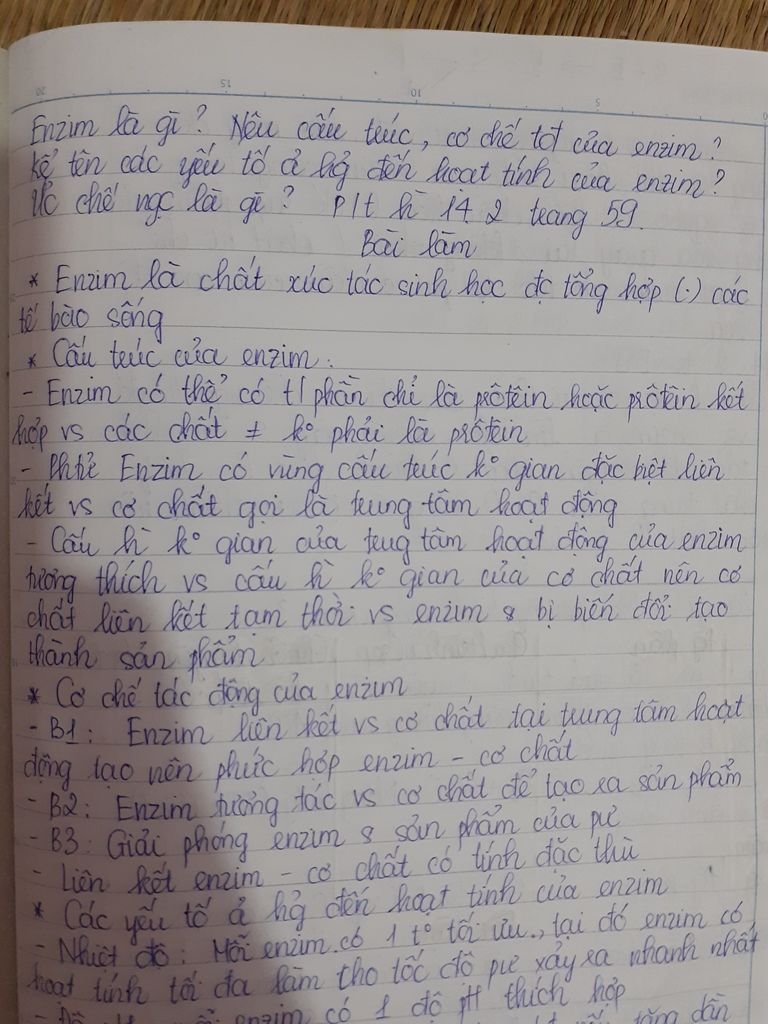 Enzim là gì? Nêu cấu trúc, cơ chế tđ của enzim?
kể tên các yếu tố ả hg̉ đến hoạt tính của enzim?
Ức chế ngc là gì? P/t hì 14.2 trang 59.
Bài làm
* Enzim là chất xúc tác sinh học đc tổng hợp (.) các
tế bào sống
* Cấu trúc của enzim:
- Enzim có thể có t/phần chỉ là prôtêin hoặc prôtêin kết
hợp vs các chất ≠ k° phải là prôtêin
- Phtử Enzim có vùng cấu trúc k° gian đặc biệt liên
kết vs cơ chất gọi là trung tâm hoạt động
- Cấu hì k° gian của trug tâm hoạt động của enzim
tương thích vs cấu hì k° gian của cơ chất nên cơ
chất liên kết tạm thời vs enzim & bị biến đổi tạo
thành sản phẩm
* Cơ chế tác động của enzim
- B1: Enzim liên kết vs cơ chất tại trung tâm hoạt
động tạo nên phức hợp enzim - cơ chất
- B2: Enzim tương tác vs cơ chất để tạo ra sản phẩm
- B3: Giải phóng enzim & sản phẩm của pư
- Liên kết enzim - cơ chất có tính đặc thù
* Các yếu tố ả hg̉ đến hoạt tính của enzim
- Nhiệt độ: Mỗi enzim có 1 t° tối ưu, tại đó enzim có
hoạt tính tối đa làm cho tốc độ pư xảy ra nhanh nhất
enzim có 1 độ pH thích hợp
tăng dần